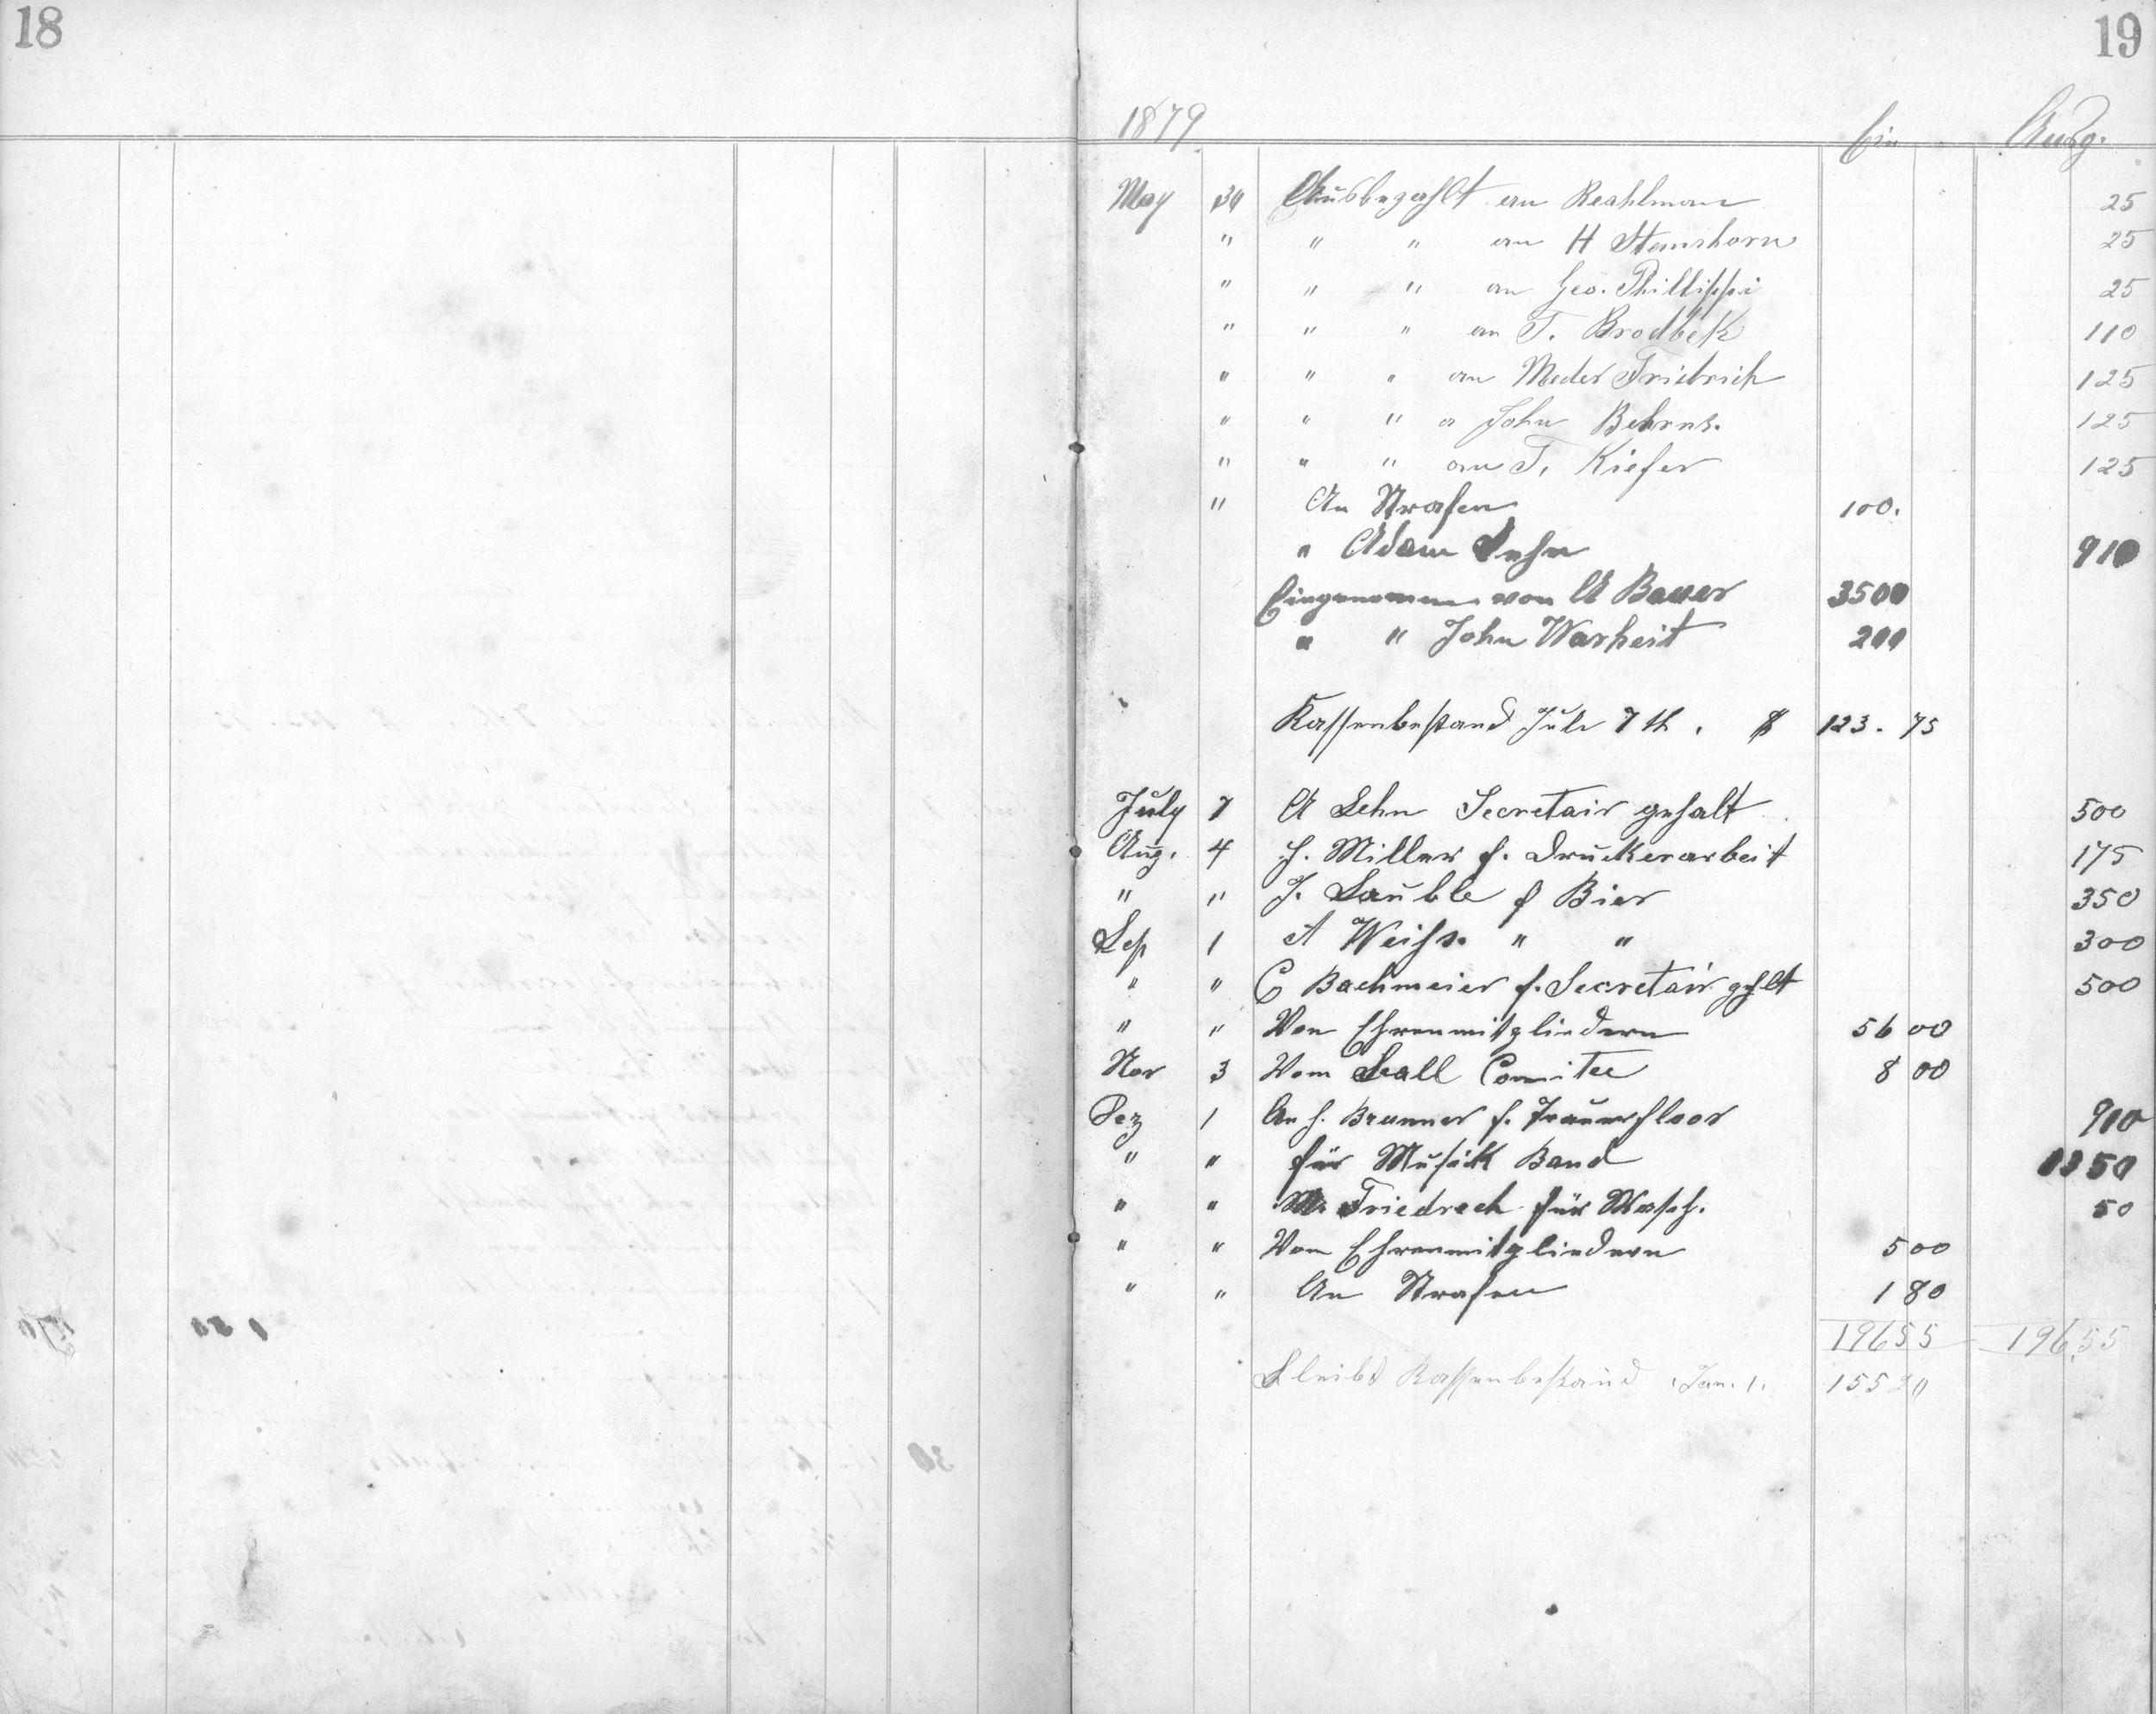 18
19
1879 Ein Ausg.
May 30 Ausbezahlt an Reahlman 25
" " " an H Stamshorn 25
" " " an Geo. Phillippi 25
" " " an F. Brodbek 110
" " " an Meder Friedrich 125
" " " a John Behrns. 125
" " " an F. Kiefer 125
" An Strafen 100.
" Adam Lehn 910
Eingenommen von A Bauer 3500
" " John Warheit 200
Kassenbestand Juli 7 th. $ 123.75
July 7 A Lehn Secretair gehalt 500
Aug. 4 H. Miller f. Druckerarbeit 175
" " J. Lauble f Bier 350
Sep 1 A Weiss. " " 300
" " C Bachmeier f. Secretair gehlt 500
" " Von Ehrenmitgliedern 56 00
Nov 3 Vom Ball Comitee 8 00
Dez 1 An H. Brunner f. Trauerfloor 900
" " für Musik Band 1350
" " M. Friedrech für Wasch. 50
" " Von Ehrenmitgliedern 5 00
" " An Strafen 1 80
196 55 196.55
Bleibt Kassenbestand Jan. 1. 155 20